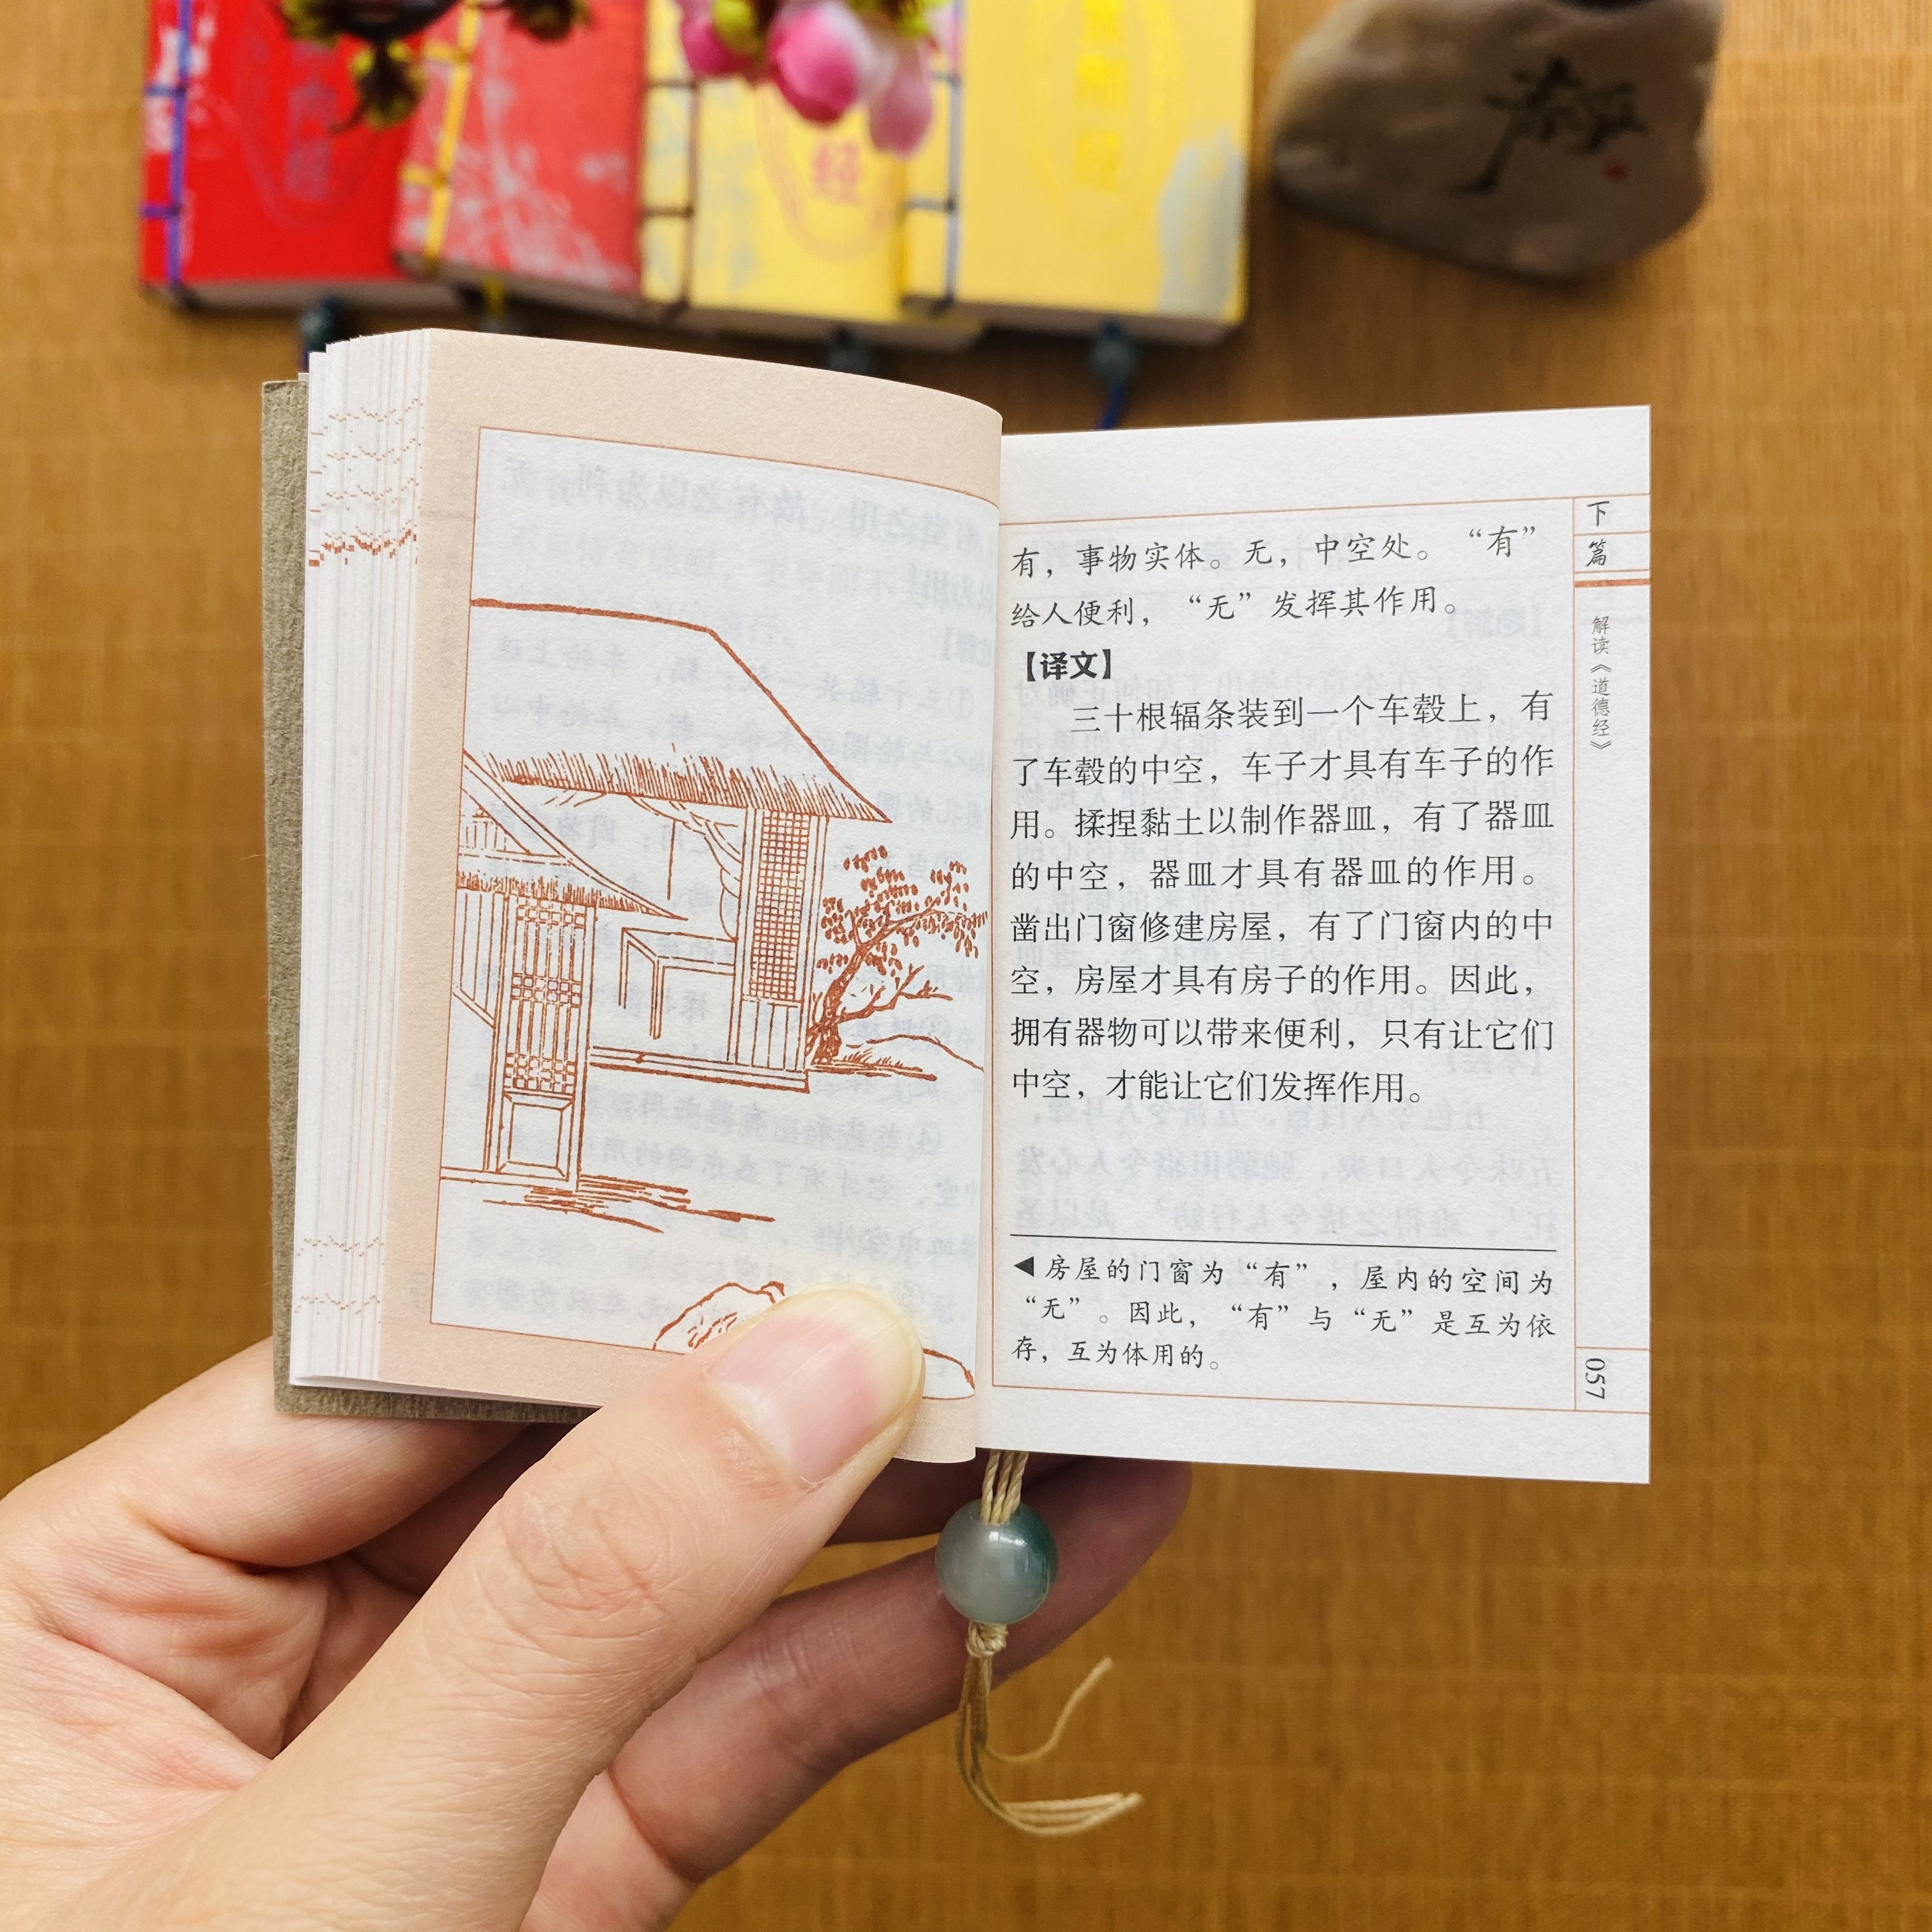 经
经
有，事物实体。无，中空处。“有”
给人便利，“无”发挥其作用。
【译文】
三十根辐条装到一个车毂上，有
了车毂的中空，车子才具有车子的作
用。揉捏黏土以制作器皿，有了器皿
的中空，器皿才具有器皿的作用。
凿出门窗修建房屋，有了门窗内的中
空，房屋才具有房子的作用。因此，
拥有器物可以带来便利，只有让它们
中空，才能让它们发挥作用。
◀房屋的门窗为“有”，屋内的空间为
“无”。因此，“有”与“无”是互为依
存，互为体用的。
下篇
解读《道德经》
057